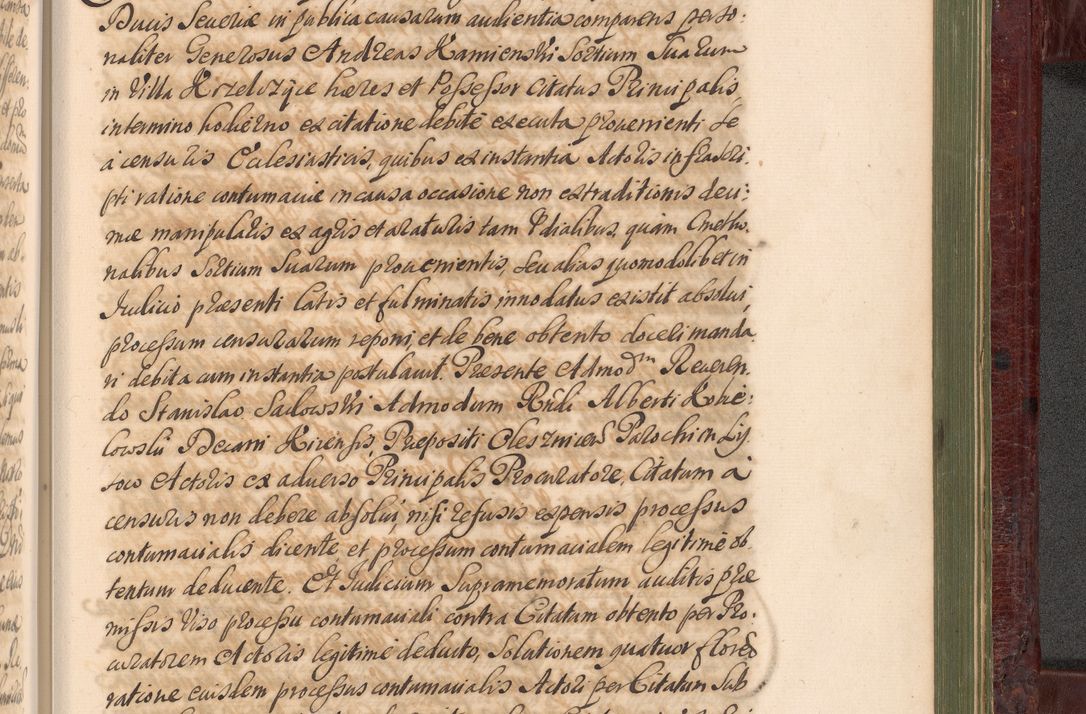 Ducis Severiæ in publica causarum audientia comparens perso:
naliter Generosus Andreas Kamienski Sortium Suarum
in Villa Krzelczyce hæres et Possessor Citatus Principalis
in termino hodierno ex citatione debite executa provenienti se
a censuris Ecclesiasticis, quibus ex instantia Actoris infrascri
pti ratione contumaciæ in causa occasione non extraditionis deci:
mæ manipularis ex agris et araturis tam Prædialibus, quam Cmetho.
nalibus Sortium Suarum provenientis, seu alias quomodolibet in
Judicio præsenti latis et fulminatis innodatus existit absolvi,
processum censurarum reponi, et de bene obtento doceri manda.
ri debita cum instantia postulavit. Præsente Admod͞m Reveren.
do Stanislao Sadowski Admodum Rndi Alberti Kobie:
lowski Decani Kirensis, Præpositi Olesznicen Parochi in Lis
sow Actoris ex adverso Principalis Procuratore, Citatum a
censuris non debere absolvi, nisi refusis expensis processus
contumacialis dicente, et processum contumacialem legitime ob
tentum deducente. Et Judicium Supramemoratum auditis præ
missis Viso processu contumaciali contra Citatum obtento per Pro.
curatorem Actoris legitime deducto, Solutionem quatuor floren
ratione eiusdem processus contumacialis Actori per Citatum Sub